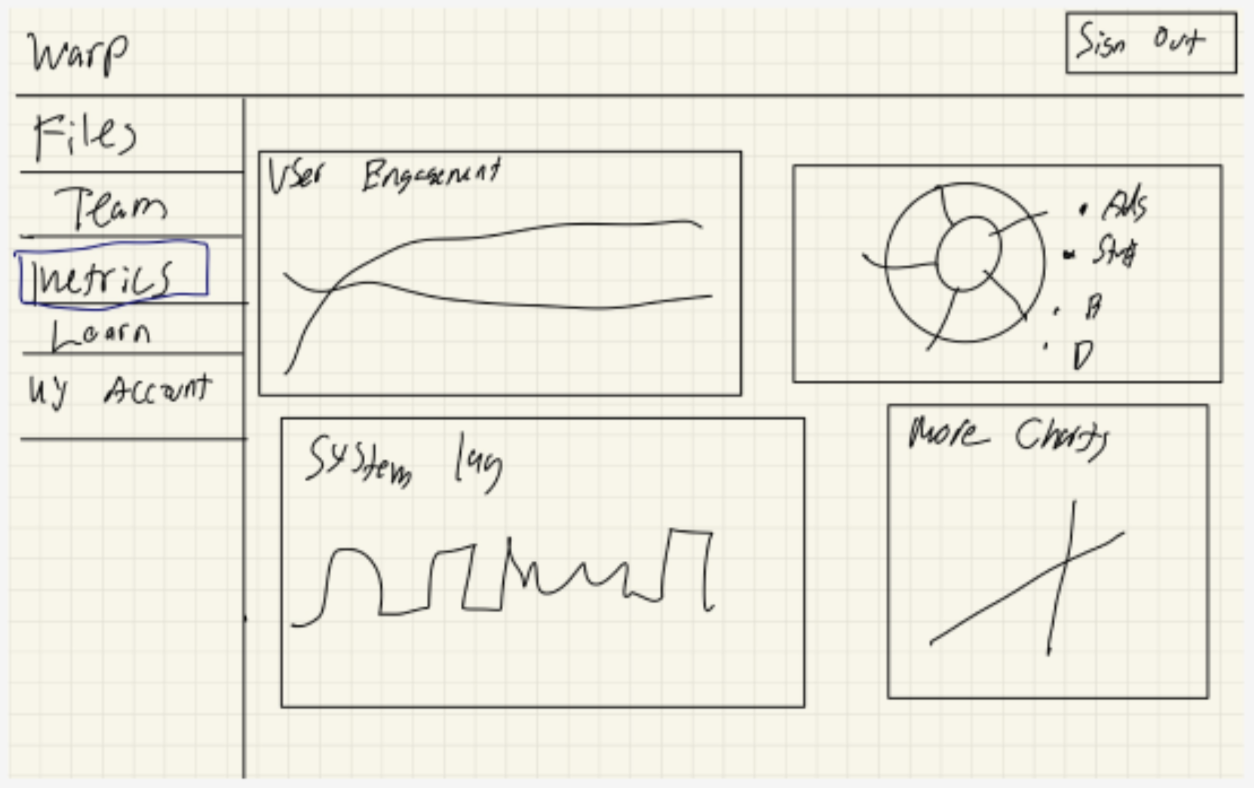 Warp
Sign Out
Files
Team
Metrics
Learn
My Account
User Engagement
Ads
B
D
System lag
More Charts